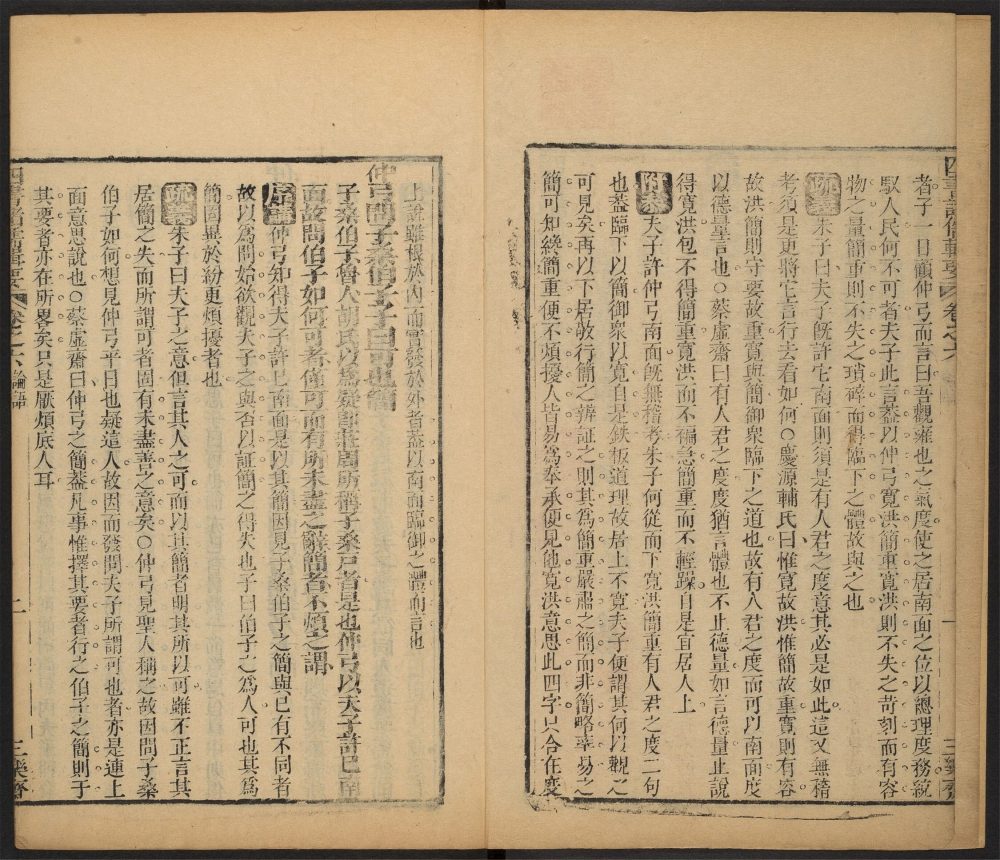 四書諸儒輯要 卷之六
者子一日籲仲弓而言曰吾觀雍也之氣度使之居南面之位以總理度務統
馭人民何不可者夫子此言葢以仲弓寬洪簡重寬洪則不失之苛刻而有容
物之量簡重則不失之瑣碎而得臨下之體故與之也
朱子曰夫子旣許它南面則須是有人君之度意其必是如此這又無稽
考須是更將它言行去看如何○慶源輔氏曰惟寬故洪惟簡故重寬則有容
故洪簡則守要故重寬與簡御衆臨下之道也故有人君之度而可以南面度
以德量言也○蔡虛齋曰有人君之度度猶言體也不止德量如言德量止說
得寬洪包不得簡重寬洪而不褊急簡重而不輕躁自是宜居人上
附叅 夫子許仲弓南面旣無稽考朱子何從而下寬洪簡重有人君之度二句
也葢臨下以簡御衆以寬自是鉄板道理故居上不寬夫子便謂其何以觀之
可見矣再以下居敬行簡之辨証之則其爲簡重嚴肅之簡而非簡略率易之
簡可知總簡重便不煩擾人皆易爲奉承便見他寬洪意思此四字只合在度
上說雖根於內而實發於外者葢以南面臨御之體而言也
仲弓問子桑伯子子曰可也簡
子桑伯子魯人胡氏以爲疑即莊周所稱子桑戸者是也仲弓以夫子許己南
面故問伯子如何可者僅可而有所未盡之辭簡者不煩之謂
序講 仲弓知得夫子許已南面是以其簡因見子桑伯子之簡與已有不同者
故以爲問始欲觀夫子之與否以証簡之得失也子曰伯子之爲人可也其爲
簡固異於紛更煩擾者也
朱子曰夫子之意但言其人之可而以其簡者明其所以可雖不正言其
居簡之失而所謂可者固有未盡善之意矣○仲弓見聖人稱之故因問子桑
伯子如何想見仲弓平日也疑這人故因而發問夫子所謂可也者亦是連上
面意思說也○蔡虛齋曰仲弓之簡葢凡事惟擇其要者行之伯子之簡則于
其要者亦在所畧矣只是厭煩底人耳
四書諸儒輯要 卷之六 論語
二
三樂齋